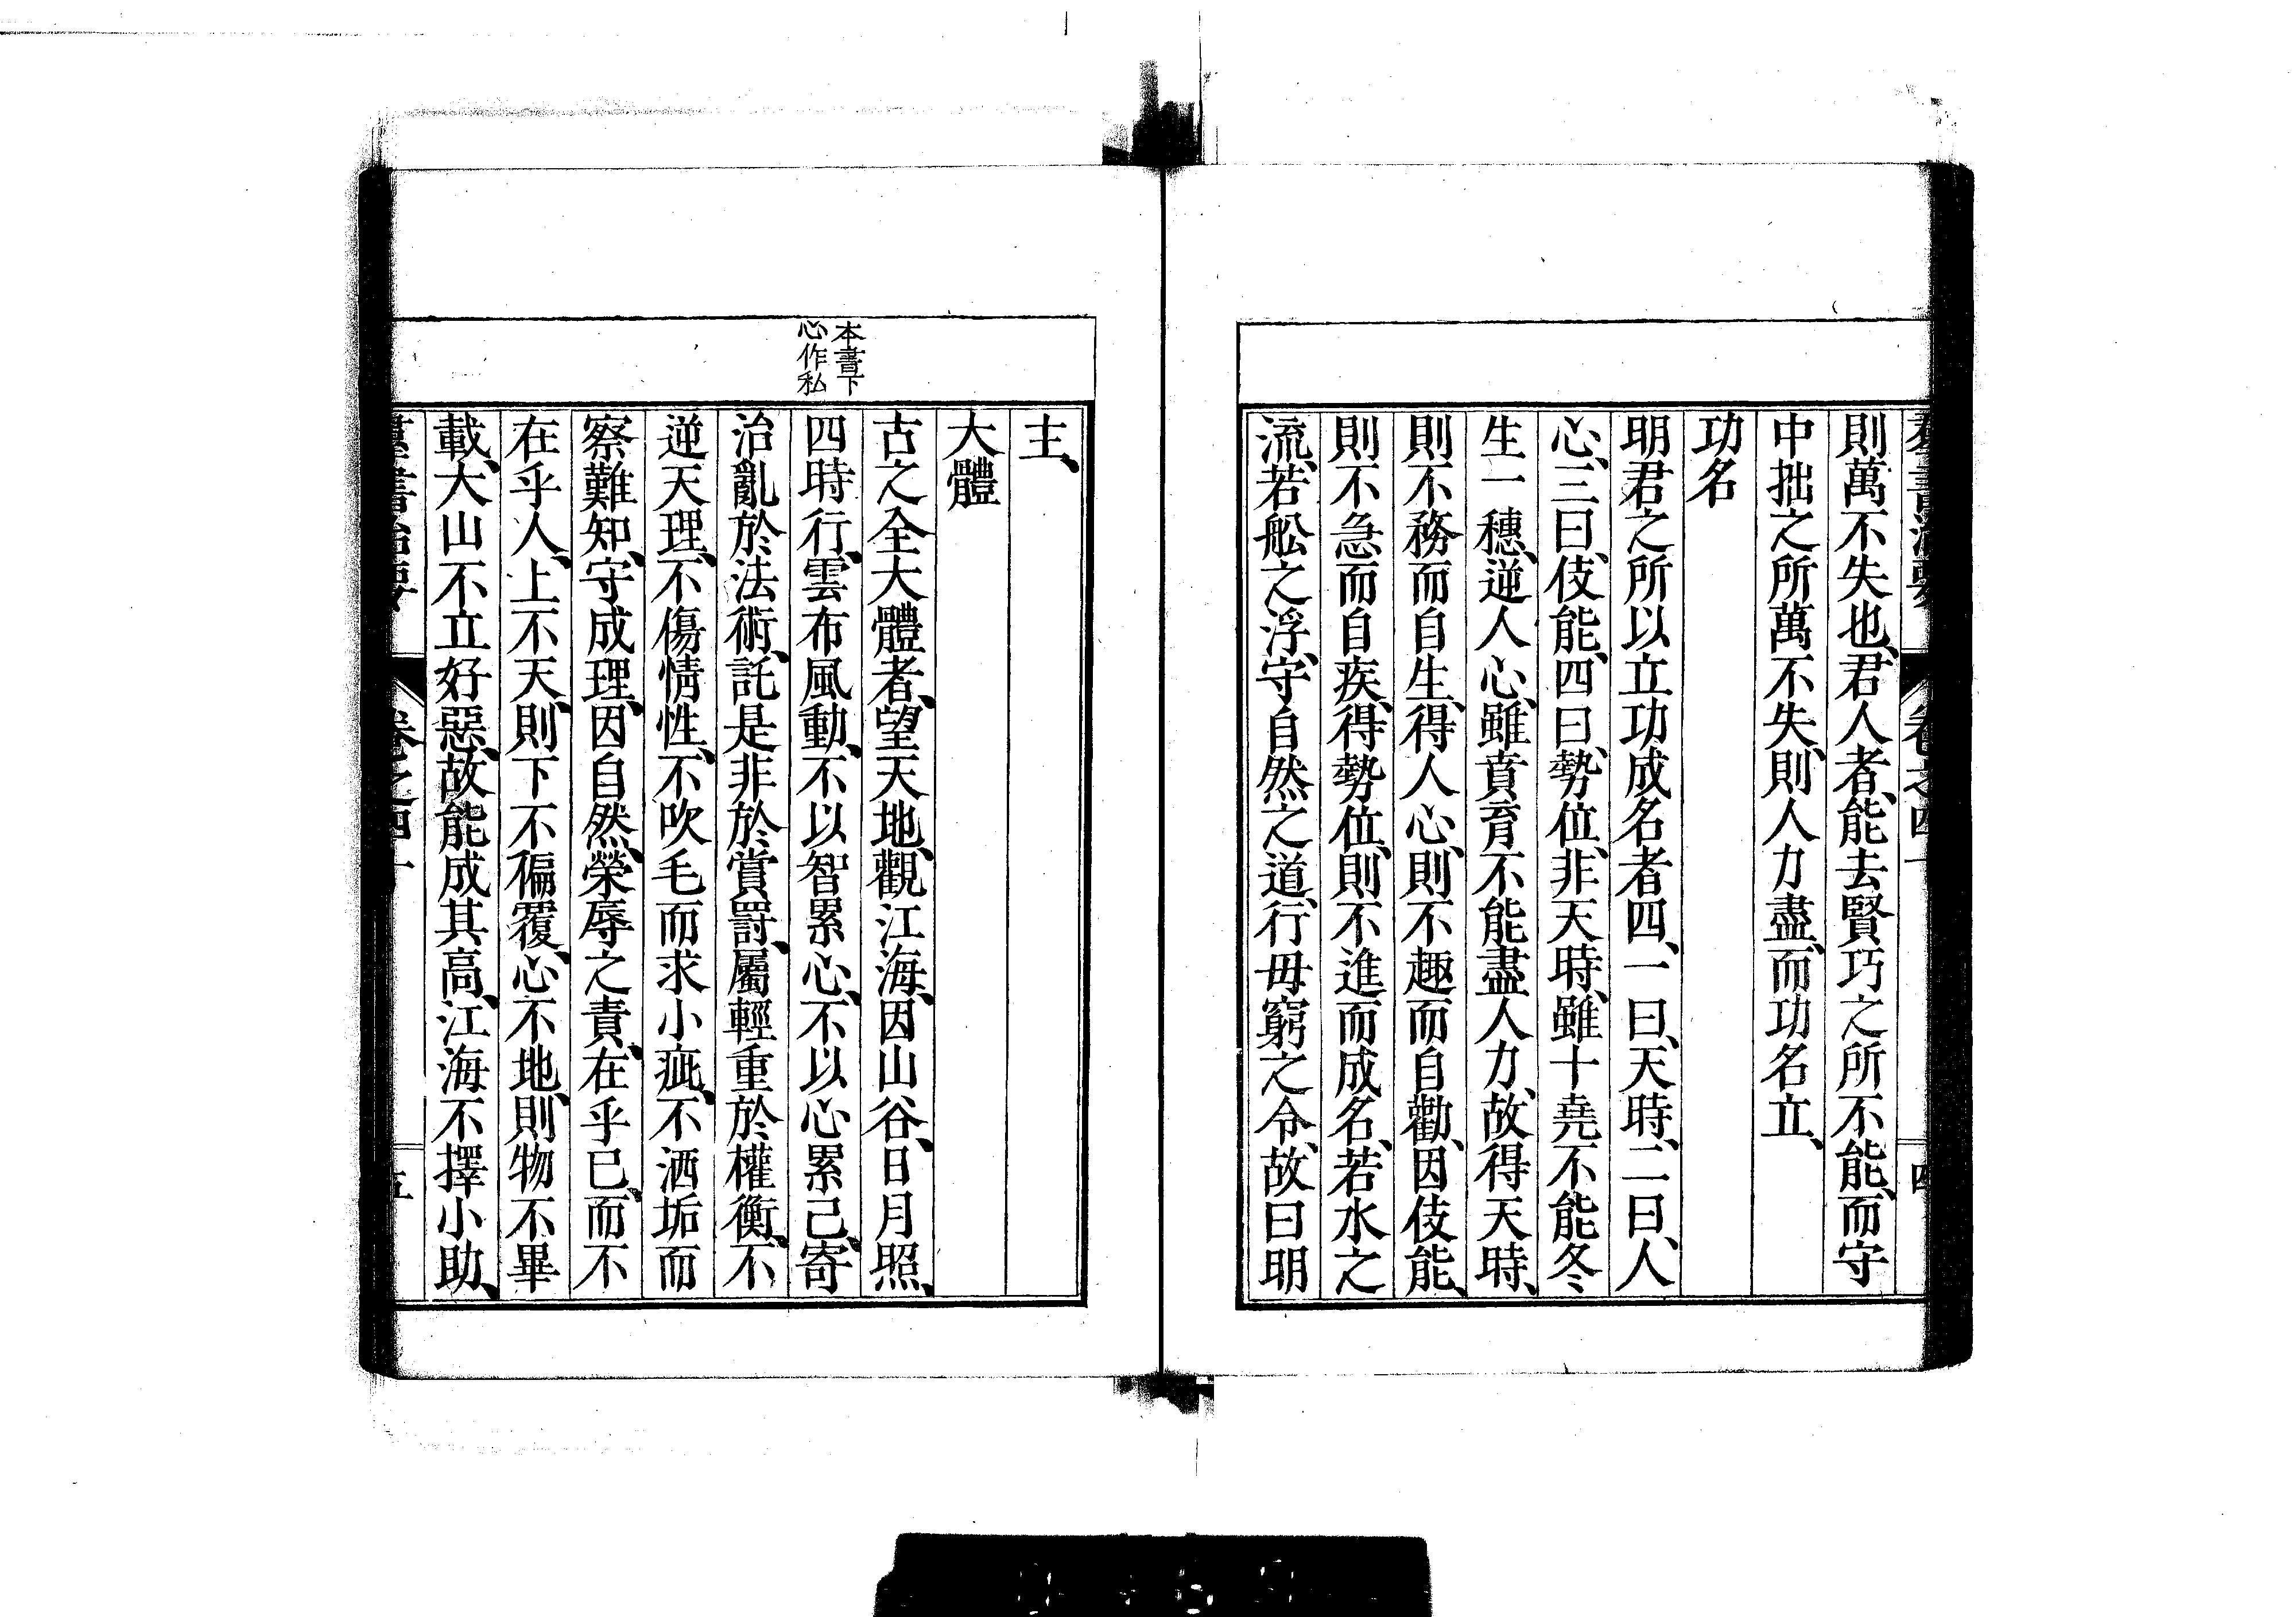 群書治要 卷之四十 四
則萬不失也、君人者、能去賢巧之所不能、而守
中拙之所萬不失、則人力盡、而功名立、
功名
明君之所以立功成名者四、一曰、天時、二曰、人
心、三曰、伎能、四曰、勢位、非天時、雖十堯不能冬
生一穗、逆人心、雖賁育不能盡人力、故得天時、
則不務而自生、得人心、則不趣而自勸、因伎能、
則不急而自疾、得勢位、則不進而成名、若水之
流、若舩之浮、守自然之道、行毋窮之令、故曰明
主、
大體
古之全大體者、望天地、觀江海、因山谷、日月照、
四時行、雲布風動、不以智累心、不以心累己、寄
本書下
心作私
治亂於法術、託是非於賞罰、屬輕重於權衡、不
逆天理、不傷情性、不吹毛而求小疵、不洒垢而
察難知、守成理、因自然、榮辱之責、在乎己、而不
在乎人、上不天、則下不徧覆、心不地、則物不畢
載、大山不立好惡、故能成其高、江海不擇小助、
群書治要 卷之四十 五